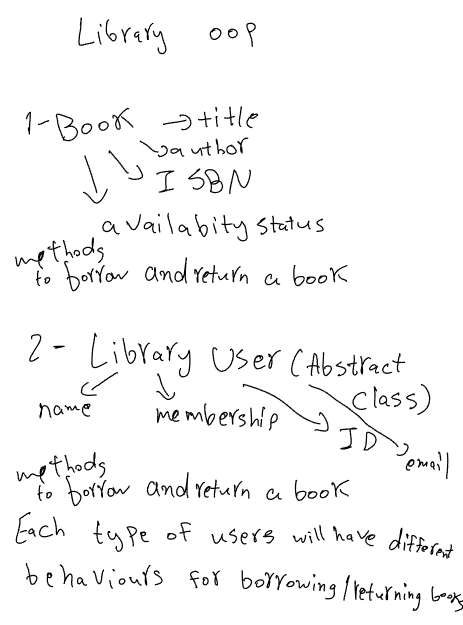 Library OOP
1- Book → title
author
ISBN
availabity status
methods
to borrow and return a book
2 - Library User (Abstract
class)
name membership ID email
methods
to borrow and return a book
Each type of users will have different
behaviours for borrowing/returning books